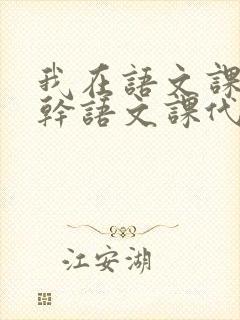 我在語文課
幹語文課代
江安湖